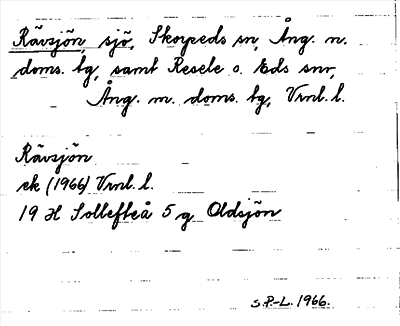 Rävsjön, sjö, Skorpeds sn, Ång. n.
doms. lg, samt Resele o. Eds snr,
Ång. m. doms. lg, Vrnl. l.
Rävsjön
ek (1966) Vrnl. l.
19 H Sollefteå 5 g Oldsjön
S.P-L. 1966.